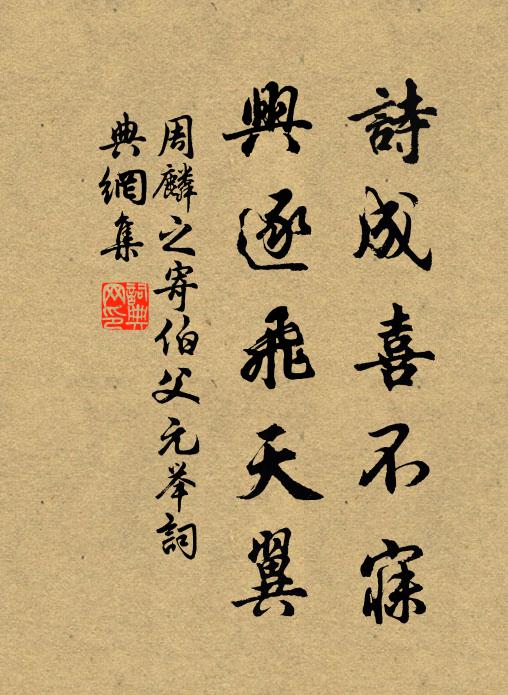 詩成喜不寐
興逐飛天翼
周麟之寄伯父元举詞
典網集
詞典
网印